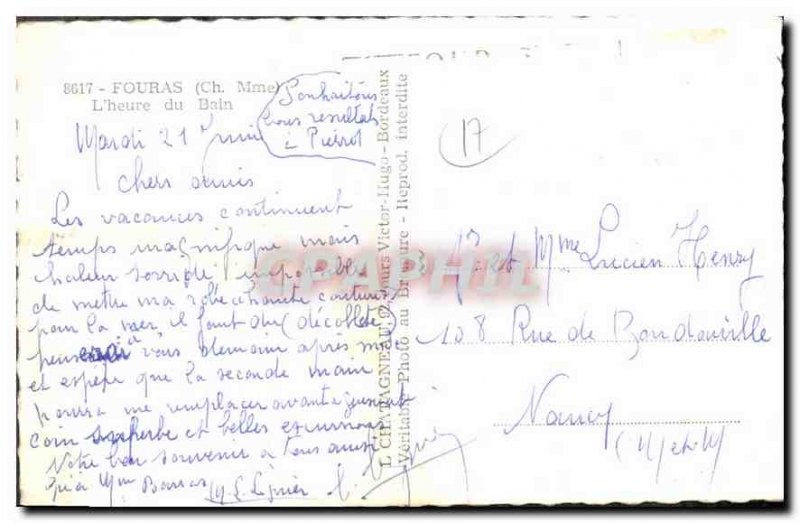 8617 - FOURAS (Ch. Mme)
L'heure du Bain
Souhaitons
bons resultats
à Pierrot
Mardi 21 juin
Chers amis
Les vacances continuent
temps magnifique mais
chaleur torride impossible
de mettre ma robe chaude
pour la mer, il faut du (décolleté)
vous demain après midi
et espère que la seconde main
pourra me remplacer avantageusement
coin superbe et belles excursions
Notre bon souvenir à tous ainsi
qu'à Mme
L. CHATAGNEAU, Cours Victor-Hugo - Bordeaux
Véritable Photo au Bromure - Reprod. interdite
17
CPAPHIL
Mr et Mme Lucien Henry
108 Rue de
Nancy
(M et M)